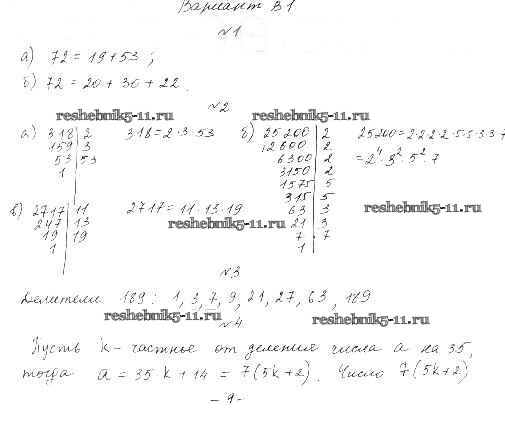 Вариант В1
№1
а) 72 = 19+53 ;
б) 72 = 20 + 30 + 22.
№2
reshebnik5-11.ru reshebnik5-11.ru
а) 318 | 2 318 = 2·3·53 б) 25200 | 2 25200 = 2·2·2·2·5·5·3·3·7
159 | 3 12600 | 2 = 2⁴·3²·5²·7
53 | 53 6300 | 2
1 3150 | 2
1575 | 5
315 | 5
в) 2717 | 11 2717 = 11·13·19 63 | 3 reshebnik5-11.ru
247 | 13 reshebnik5-11.ru 21 | 3
19 | 19 7 | 7
1 1
№3
Делители 189 : 1, 3, 7, 9, 21, 27, 63, 189
reshebnik5-11.ru reshebnik5-11.ru
№4
Пусть k - частное от деления числа a на 35,
тогда a = 35k + 14 = 7(5k+2). Число 7(5k+2)
- 9 -